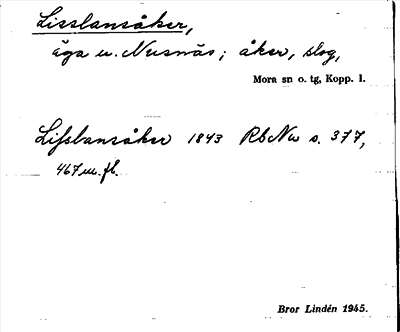 Lisslansåker,
äga u. Nusnäs; åker, slog,
Mora sn o. tg, Kopp. l.
Lisslansåker 1843 RbNu s. 377,
467 m. fl.
Bror Lindén 1945.